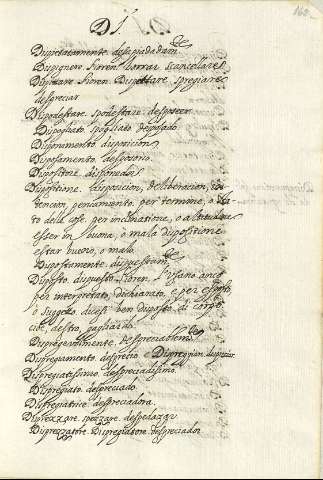 D I
168
Dispietatamente desapiadadam.te
Dispignere Fioren. borrar, cancellare
Dispitare Fioren. Dispettare, spregiare
despreciar
Dispodestare spodestare. desposeer
Dispogliato spogliato despojado
Disponimento disposicion
Disposamento. desposorio
Dispositore. disponedor
Dispositione. disposicion, deliberacion,
tencion, pensamiento. per termine, o
to della cose. per inclinatione, o attitudine
esser in buona, o mala dispositione
estar bueno, o malo
Dispostamente dispuestam.te
Disposto dispuesto Fioren. s'usano anco
per interpretato, dichiarato, e per esposto
o suggeto. dicesi ben disposto di corpo
cioè, destro, gagliardo.
Dispregevolmente despreciablem.te
Dispregiamento desprecio e Dispregium
Dispregiatissimo despreciadissimo
Dispregiato despreciado
Dispregiatrice despreciadora
Disprezzare spezzare. despedazar
Disprezzatore Dispregiatore despreciador